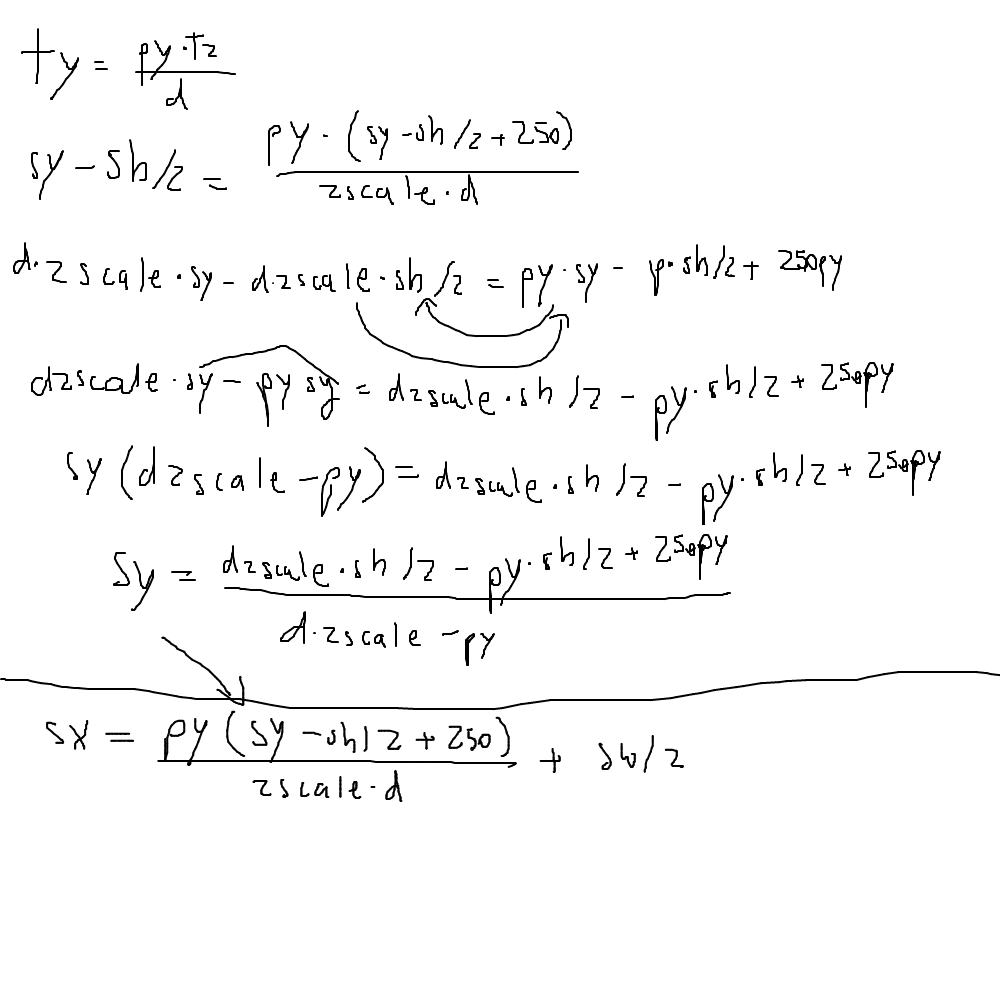 ty = py · tz / d
sy - sh/2 = py · (sy - sh/2 + 250) / zscale · d
d · zscale · sy - d · zscale · sh/2 = py · sy - p · sh/2 + 250py
dzscale · sy - py sy = dzscale · sh/2 - py · sh/2 + 250py
sy (dzscale - py) = dzscale · sh/2 - py · sh/2 + 250py
sy = dzscale · sh/2 - py · sh/2 + 250py / d · zscale - py
sx = py (sy - sh/2 + 250) / zscale · d + sw/2